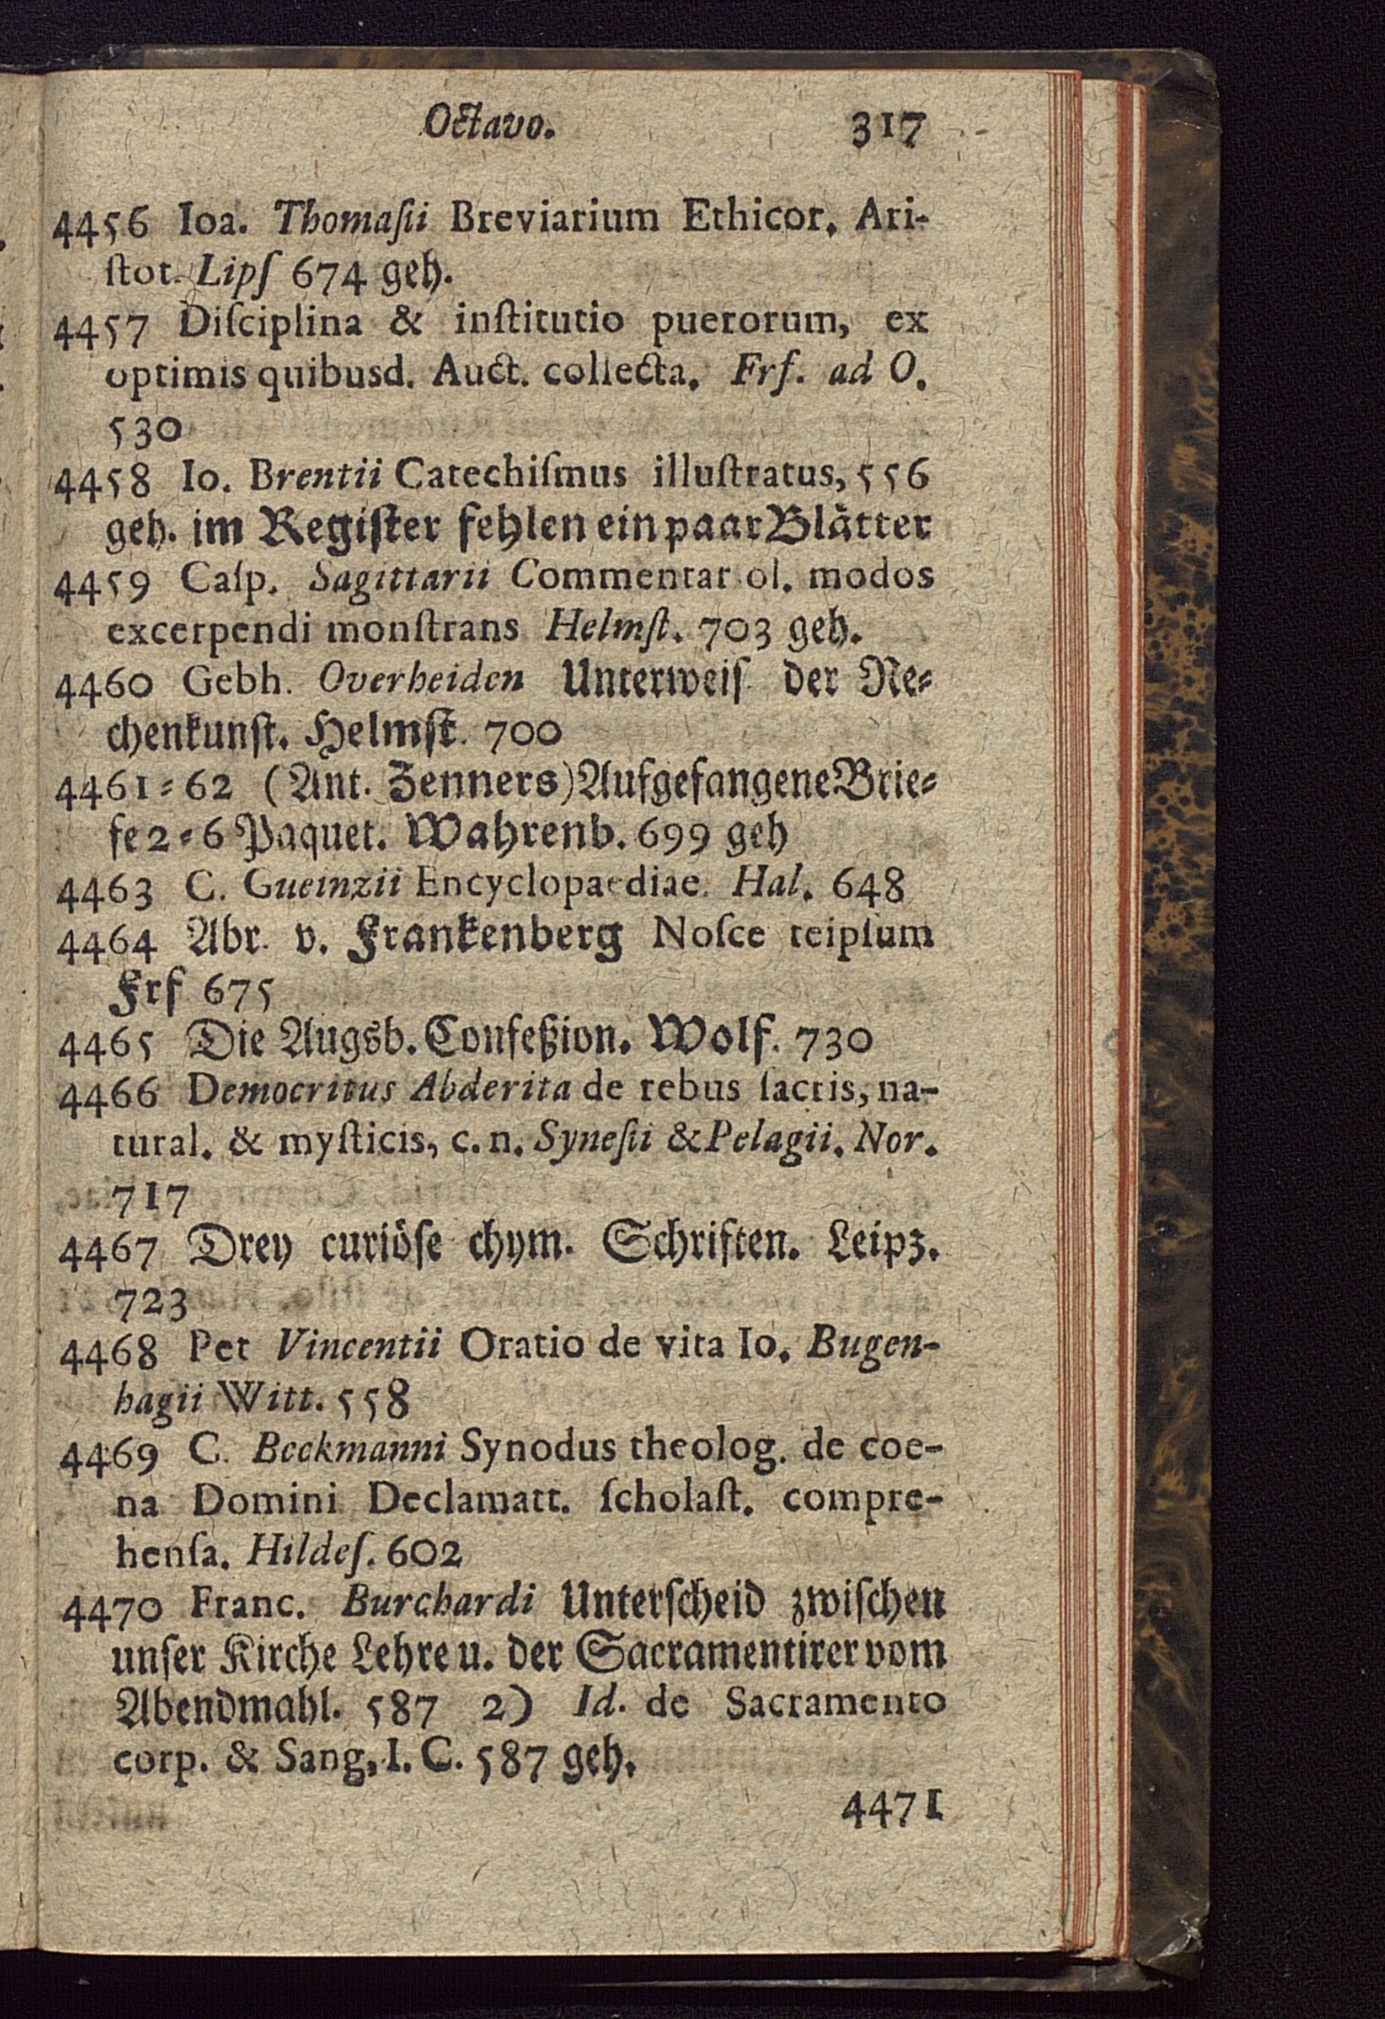 Octavo. 317
4456 Ioa. Thomaſii Breviarium Ethicor. Ari-
ſtot. Lipſ 674 geh.
4457 Diſciplina & inſtitutio puerorum, ex
optimis quibusd. Auct. collecta. Frf. ad O.
530
4458 Io. Brentii Catechiſmus illuſtratus, 556
geh. im Regiſter fehlen ein paar Blätter
4459 Caſp. Sagittarii Commentar ol. modos
excerpendi monſtrans Helmſt. 703 geh.
4460 Gebh. Overheiden Unterweiſ. der Re-
chenkunſt. Helmſt. 700
4461-62 (Ant. Zenners) Aufgefangene Brie-
fe 2-6 Paquet. Wahrenb. 699 geh
4463 C. Gueinzii Encyclopaediae. Hal. 648
4464 Abr. v. Frankenberg Noſce teipſum
Frf 675
4465 Die Augsb. Confeßion. Wolf. 730
4466 Democritus Abderita de rebus ſacris, na-
tural. & myſticis, c. n. Syneſii & Pelagii. Nor.
717
4467 Drey curiöſe chym. Schriften. Leipz.
723
4468 Pet Vincentii Oratio de vita Io. Bugen-
hagii Witt. 558
4469 C. Beckmanni Synodus theolog. de coe-
na Domini Declamatt. ſcholaſt. compre-
henſa. Hildeſ. 602
4470 Franc. Burchardi Unterſcheid zwiſchen
unſer Kirche Lehre u. der Sacramentirer vom
Abendmahl. 587 2) Id. de Sacramento
corp. & Sang, I. C. 587 geh.
4471